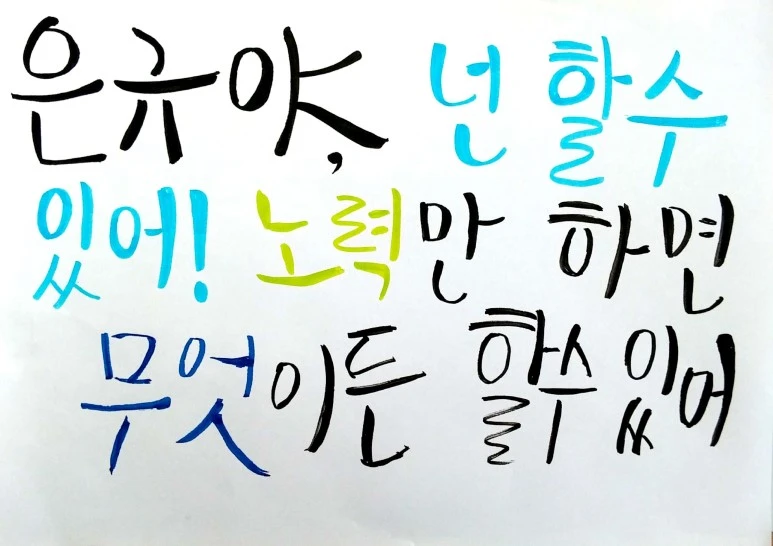 은규야, 넌 할수
있어! 노력만 하면
무엇이든 할수 있어